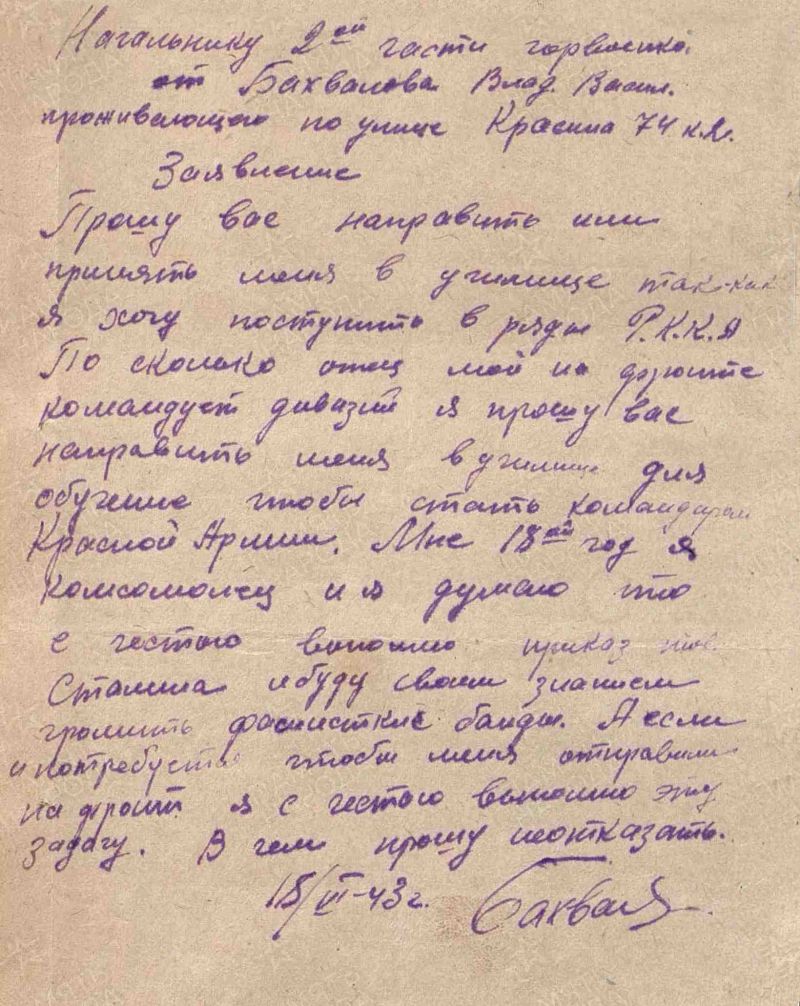 Начальнику 2ой части горвоенко.
от Бахвалова Влад. Васил.
проживающего по улице Красина 74 к.Я.
Заявление
Прошу вас направить или
принять меня в училище так-как
я хочу поступить в ряды Р.К.К.А
По сколько отец мой на фронте
командует дивазий я прошу вас
направить меня в училище для
обучение чтобы стать командиром
Красной Армии. Мне 18ый год я
комсомолец и я думаю что
с честью выполню приказ тов.
Сталина ибуду своим знанием
громить фашисткие банды. А если
и потребуется чтобы меня отправили
на фронт я с честью выполню эту
задачу. В чем прошу неотказать.
18/VI-43г. Бахвал